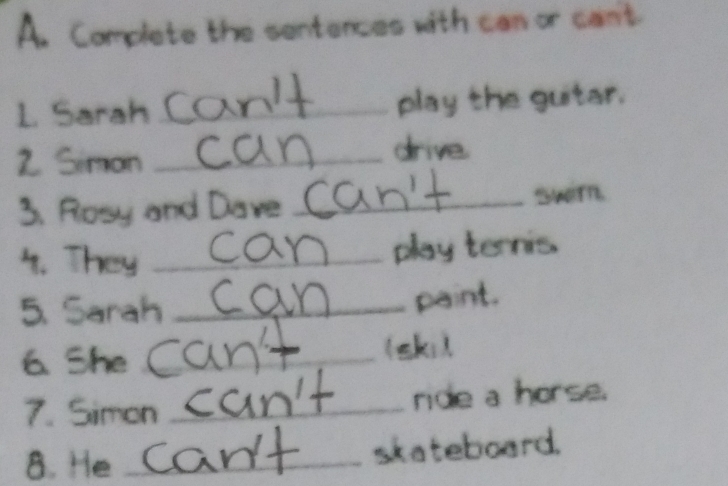 A. Complete the sentences with can or can't
1. Sarah can't play the guitar.
2. Simon can drive.
3. Rosy and Dave can't swim.
4. They can play tennis.
5. Sarah can paint.
6. She can't (ski)
7. Simon can't ride a horse.
8. He can't skateboard.